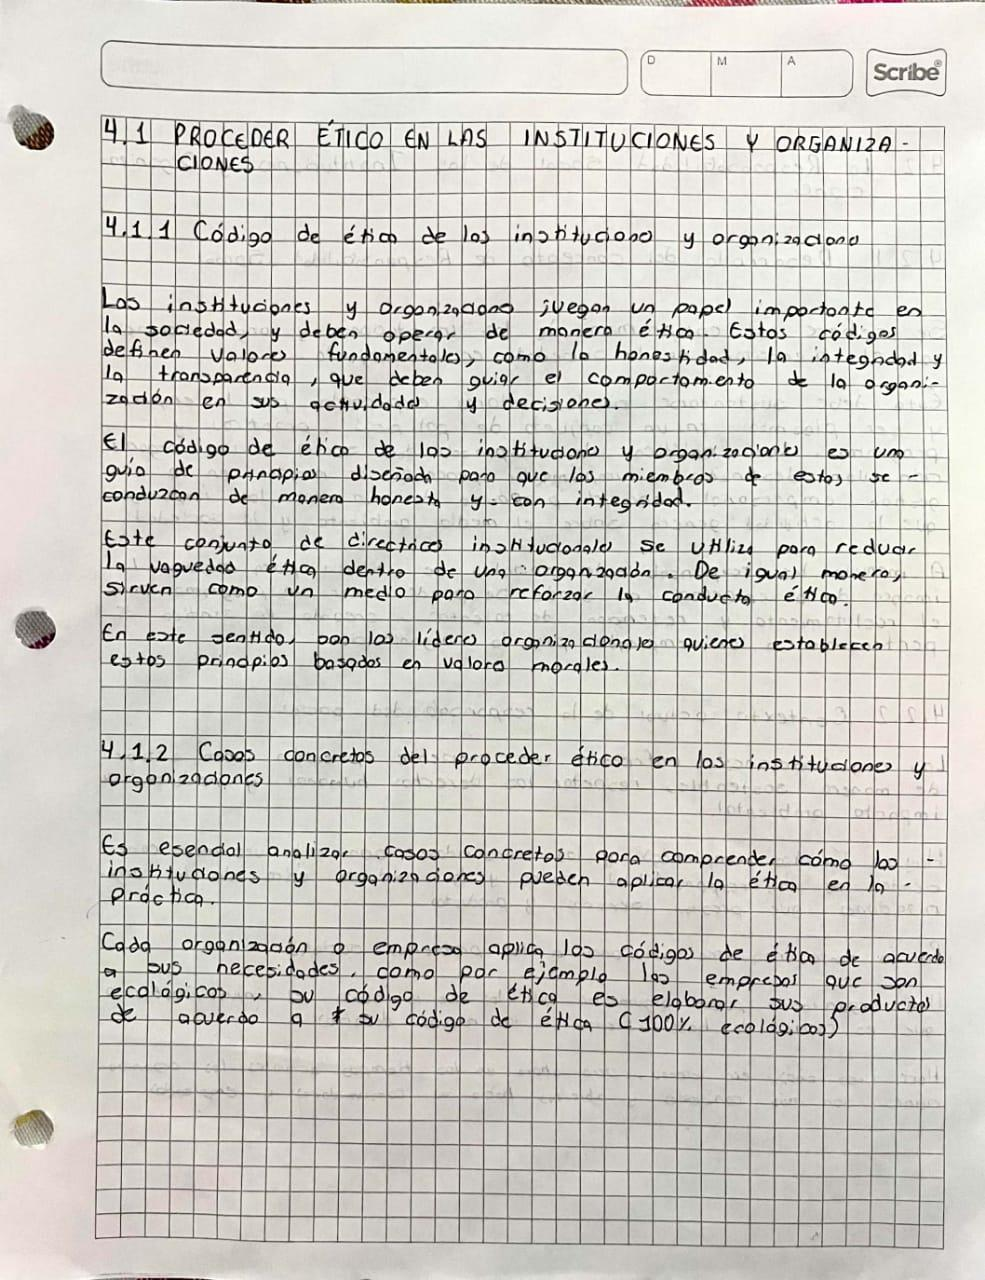 D M A Scribe®
4.1 PROCEDER ÉTICO EN LAS INSTITUCIONES Y ORGANIZA-
CIONES
4.1.1 Código de ética de las instituciones y organizaciones
Las instituciones y organizaciones juegan un papel importante en
la sociedad, y deben operar de manera ética. Estos códigos
definen valores fundamentales, como la honestidad, la integridad y
la transparencia, que deben guiar el comportamiento de la organi-
zación en sus actividades y decisiones.
El código de ética de las instituciones y organizaciones es una
guía de principios diseñada para que los miembros de estas se -
conduzcan de manera honesta y con integridad.
Este conjunto de directrices institucionales se utiliza para reducir
la vaguedad ética dentro de una organización. De igual manera,
sirven como un medio para reforzar la conducta ética.
En este sentido, son los líderes organizacionales quienes establecen
estos principios basados en valores morales.
4.1.2 Casos concretos del proceder ético en las instituciones y
organizaciones
Es esencial analizar casos concretos para comprender cómo las -
instituciones y organizaciones pueden aplicar la ética en la -
práctica.
Cada organización o empresa aplica los códigos de ética de acuerdo
a sus necesidades, como por ejemplo las empresas que son
ecológicas, su código de ética es elaborar sus productos
de acuerdo a su código de ética (100% ecológicos)